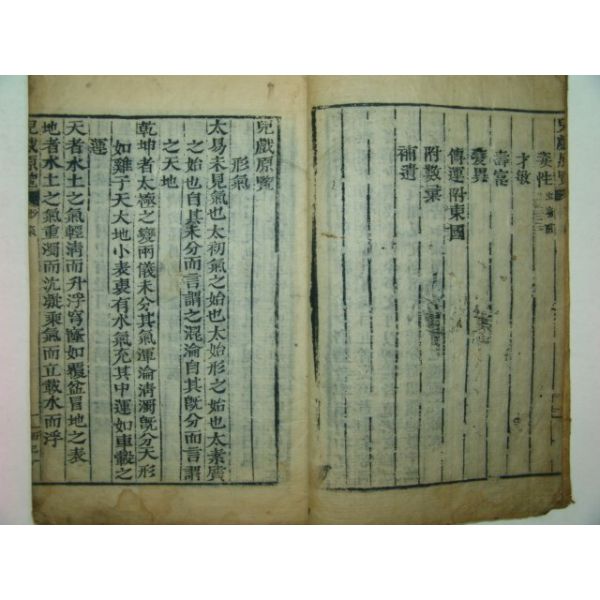 兒戲原覽
稟性
才敏
壽富
變異
傳運附東國
附數葉
補遺
兒戲原覽
形氣
太易未見氣也太初氣之始也太始形之始也太素質
之始也自其未分而言謂之混淪自其旣分而言謂
之天地
乾坤者太極之變兩儀未分其氣渾淪淸濁旣分天形
如雞子天大地小表裏有水氣充其中運如車轂之
運
天者水土之氣輕淸而升浮穹窿如覆盆冒地之表
地者水土之氣重濁而沈凝乘氣而立載水而浮
兒戲原覽